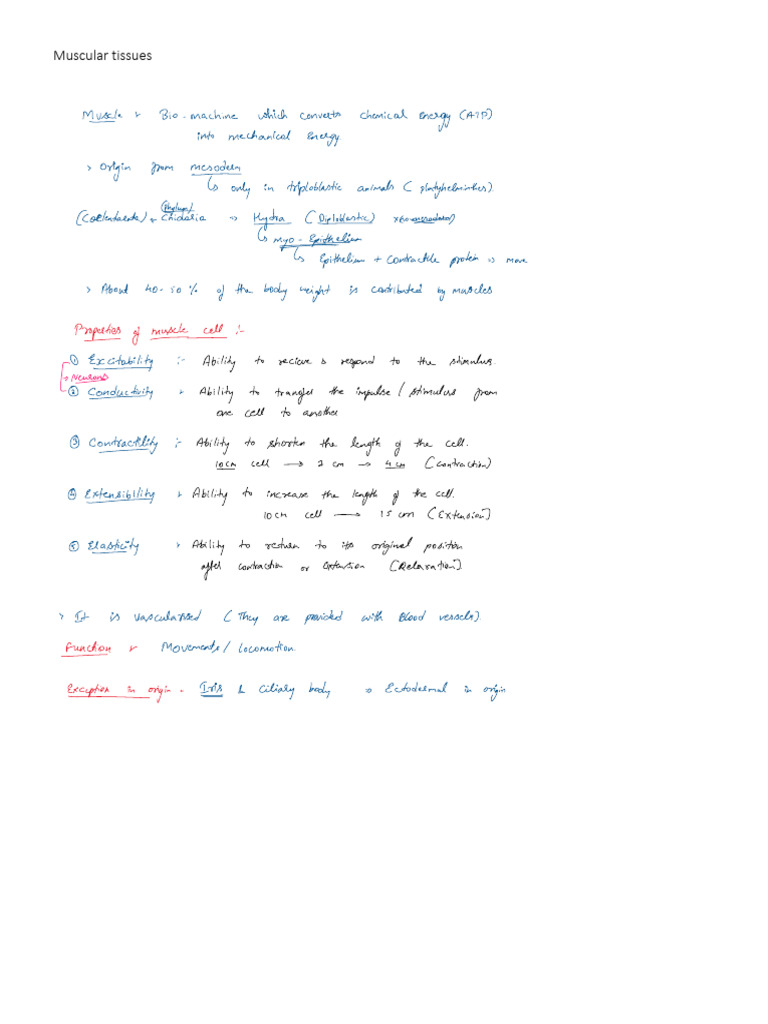 Muscular tissues
Muscle :- Bio-machine which converts chemical energy (ATP)
into mechanical Energy
> Origin from mesoderm
↳ only in triploblastic animals ( platyhelminthes)
(Phylum)
(Coelenterata) + Cnidaria => Hydra ( Diploblastic)
↳ Myo-Epithelium
↳ Epithelium + contractile protein => move
> About 40-50 % of the body weight is contributed by muscles
Properties of muscle cell :-
① Excitability :- Ability to recieve & respond to the stimulus.
→ Neurons
② Conductivity :- Ability to transfer the impulse / stimulus from
one cell to another
③ Contractility :- Ability to shorten the length of the cell.
10cm cell → 7 cm → 4 cm (contraction)
④ Extensibility :- Ability to increase the length of the cell.
10 cm cell → 15 cm (Extension]
⑤ Elasticity :- Ability to return to its original position
after contraction or extension [Relaxation]
> It is vascularised ( They are provided with Blood vessels).
Function :- Movements/ Locomotion.
Exception in origin - Iris & Ciliary body => Ectodermal in origin